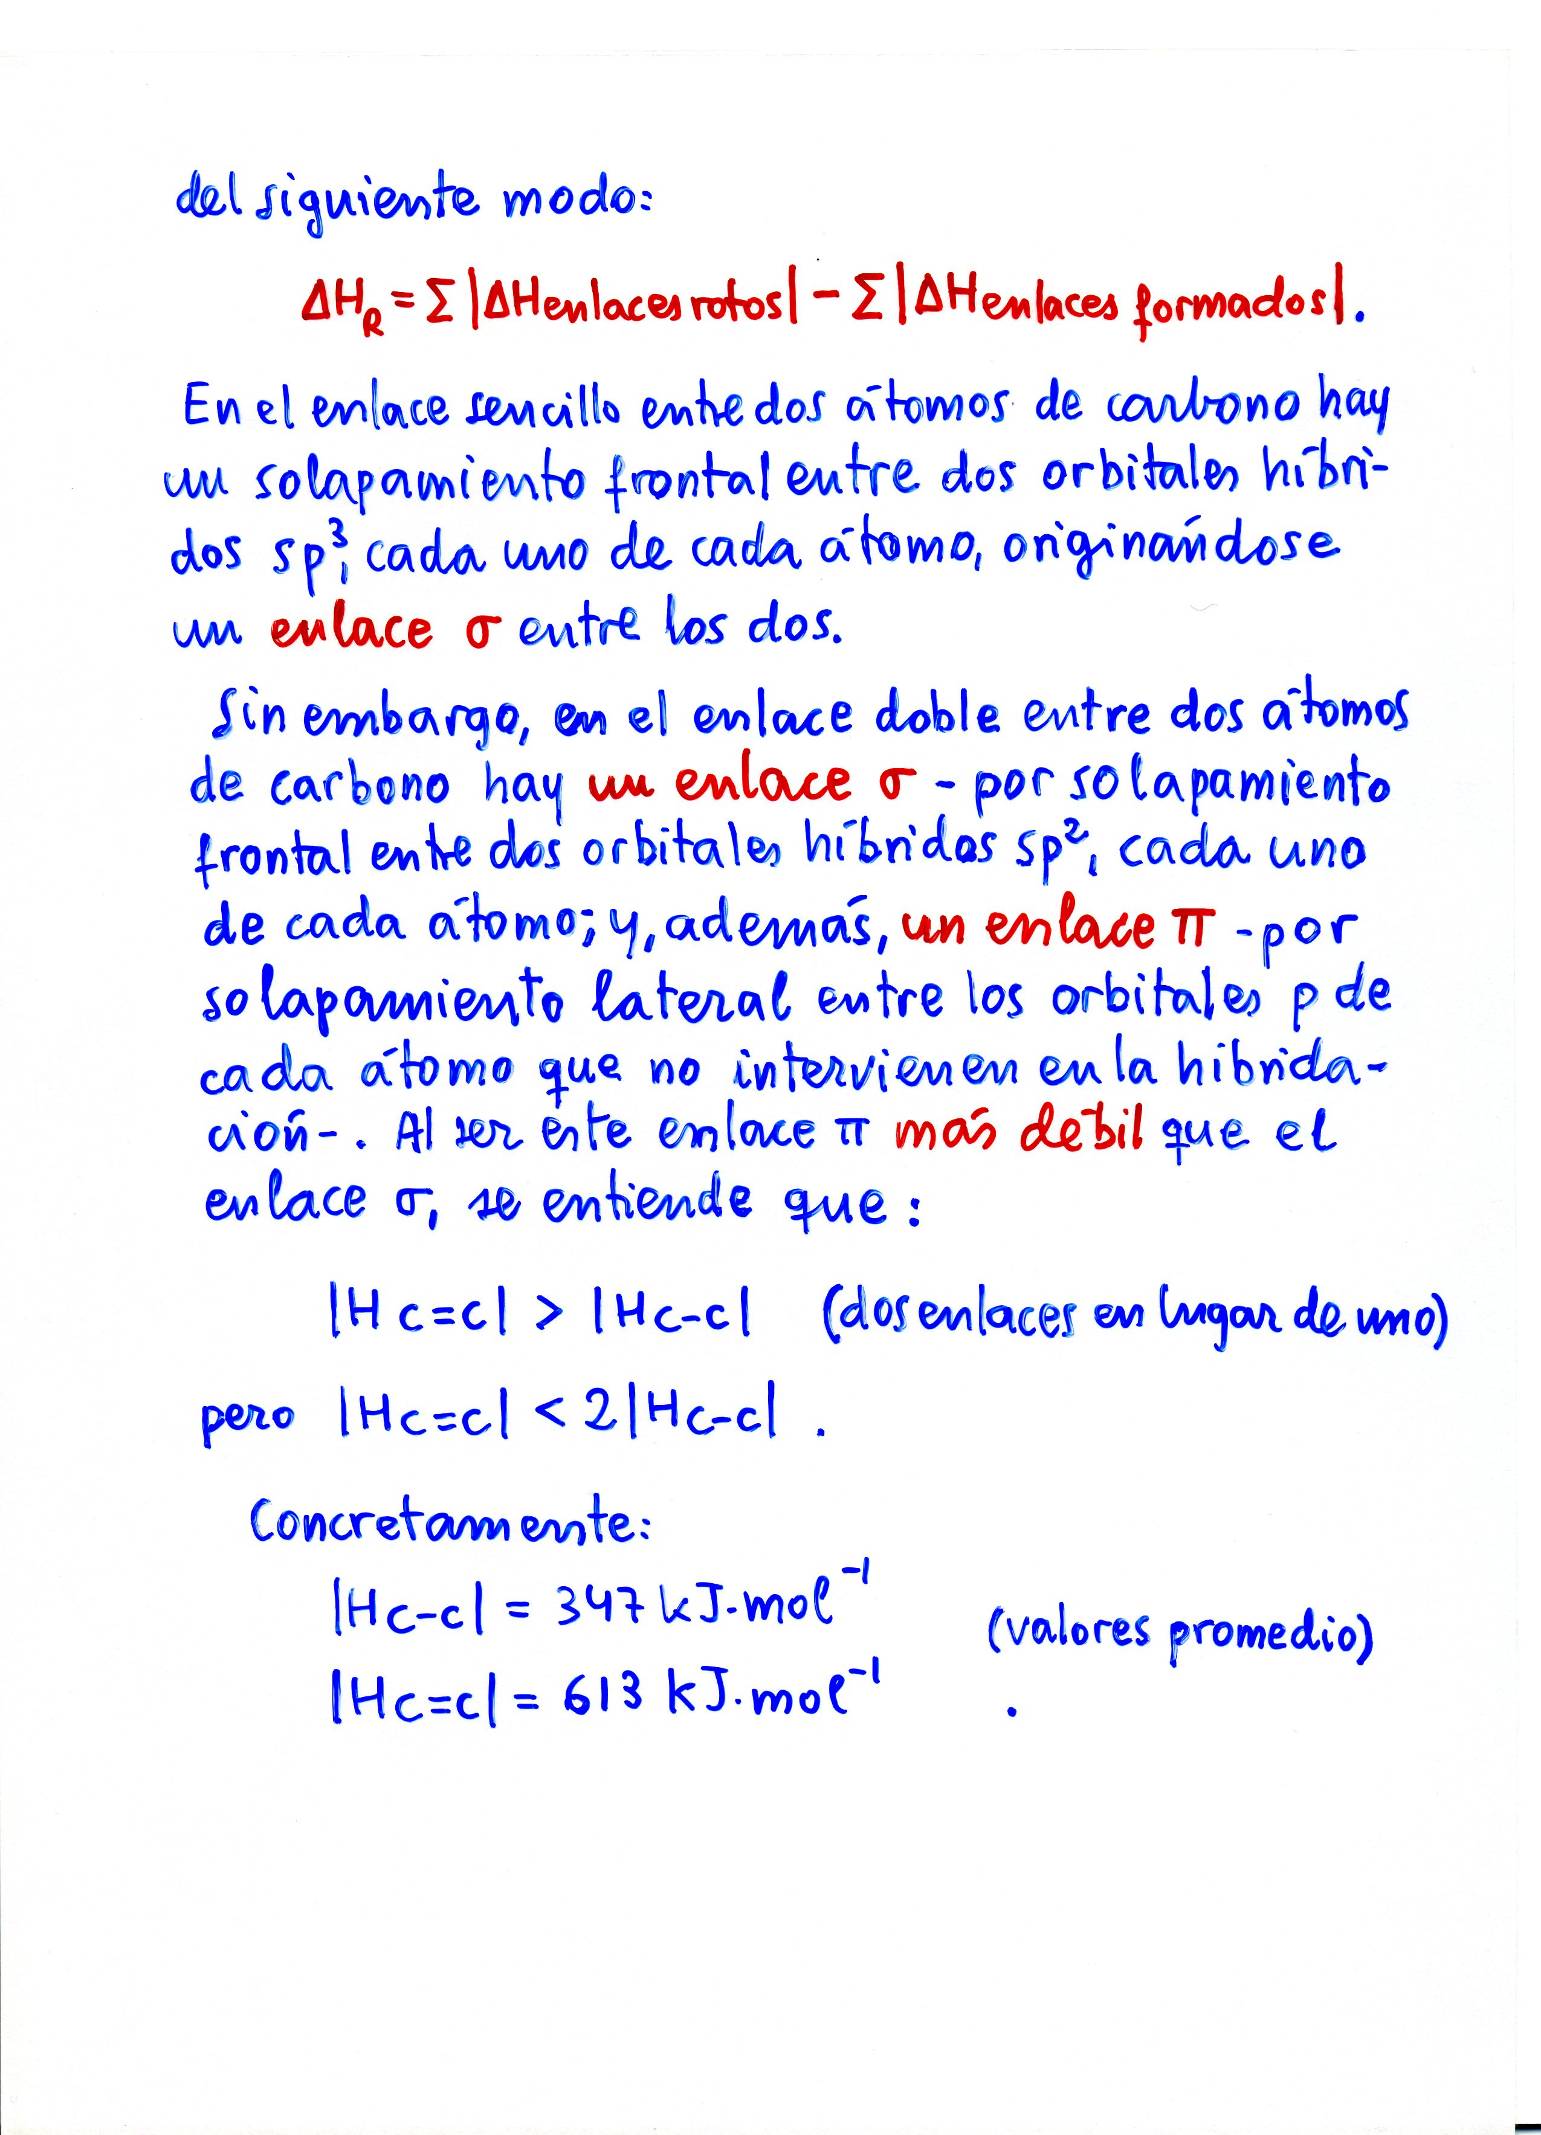 del siguiente modo:
ΔH_R = Σ |ΔHenlaces rotos| - Σ |ΔHenlaces formados|.
En el enlace sencillo entre dos átomos de carbono hay
un solapamiento frontal entre dos orbitales híbri-
dos sp³, cada uno de cada átomo, originándose
un enlace σ entre los dos.
Sin embargo, en el enlace doble entre dos átomos
de carbono hay un enlace σ - por solapamiento
frontal entre dos orbitales híbridos sp², cada uno
de cada átomo; y, además, un enlace π - por
solapamiento lateral entre los orbitales p de
cada átomo que no intervienen en la hibrida-
ción-. Al ser este enlace π más débil que el
enlace σ, se entiende que:
|H C=C| > |H C-C| (dos enlaces en lugar de uno)
pero |H C=C| < 2 |H C-C| .
Concretamente:
|H C-C| = 347 kJ·mol⁻¹
(valores promedio)
|H C=C| = 613 kJ·mol⁻¹ .